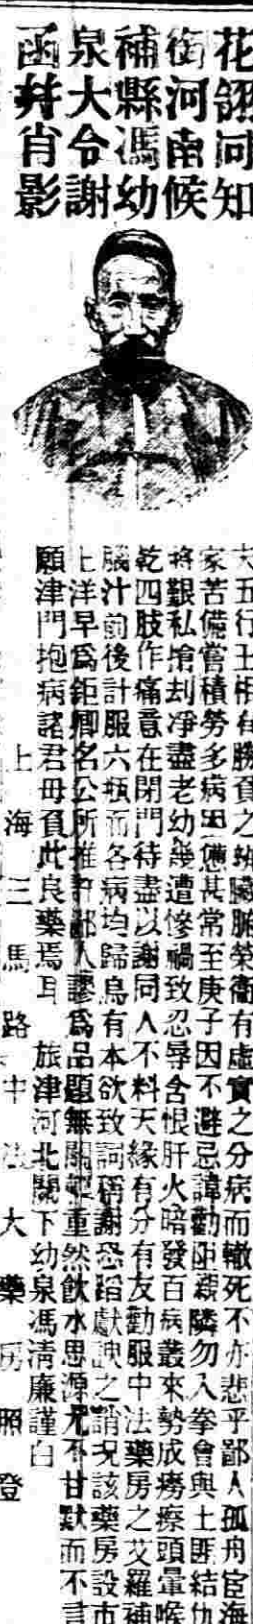 花翎同知
銜河南候
補縣馮幼
泉大令謝
函幷肖影
夫五行王相有勝負之殊臟腑榮衞有虛實之分病而輒死不亦悲乎鄙人孤舟宦海
家苦備嘗積勞多病困憊甚常至庚子因不避忌諱勸阻親隣勿入拳會與土匪結仇
將艱私搶刦凈盡老幼幾遭慘禍致忍辱含恨肝火暗發百病叢來勢成癆瘵頭暈喉
乾四肢作痛意在閉門待盡以謝同人不料天緣有分有友勸服中法藥房之艾羅補
腦汁前後計服六瓶而各病均歸烏有本欲致詞稱謝恐蹈獻諛之誚况該藥房設市
上洋早爲鉅卿名公所推許鄙人謬爲品題無關輕重然飮水思源尤不甘默而不言
願津門抱病諸君毋負此良藥焉耳 旅津河北關下幼泉馮清廉謹白
上海三馬路中法大藥房照登